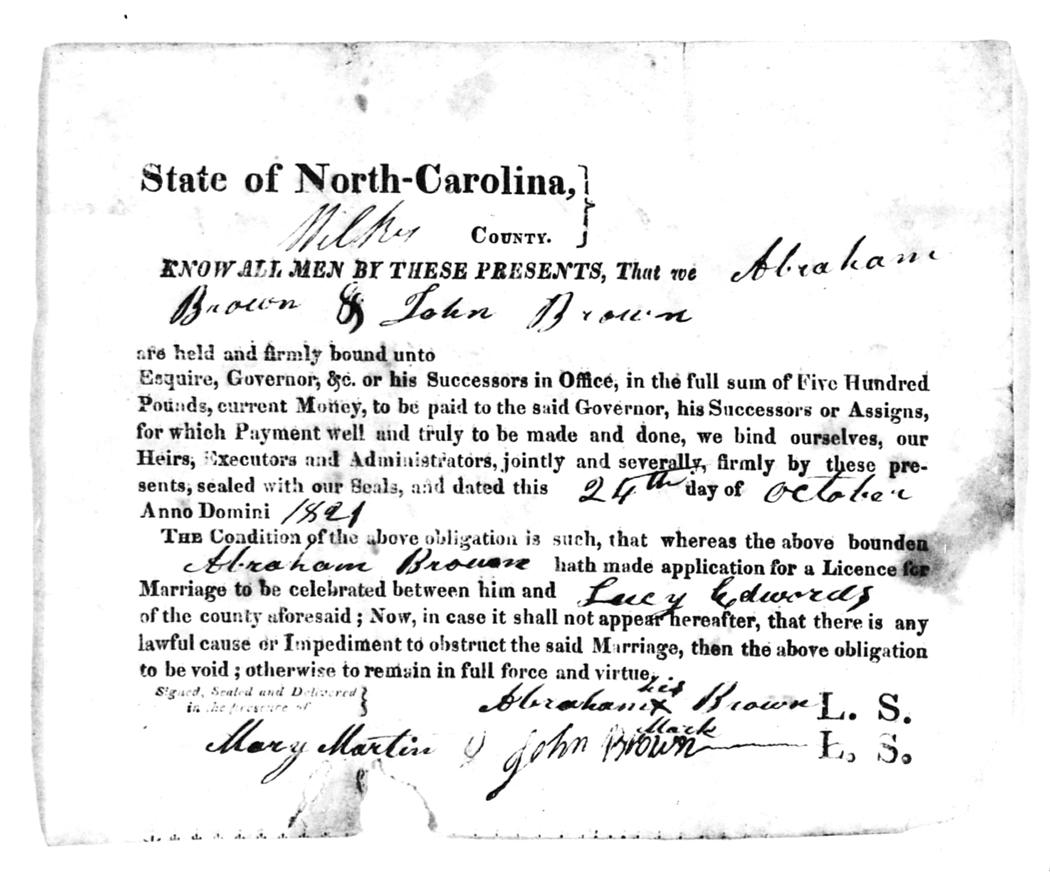 State of North-Carolina,
Wilkes COUNTY.
KNOW ALL MEN BY THESE PRESENTS, That we Abraham
Brown & John Brown
are held and firmly bound unto
Esquire, Governor, &c. or his Successors in Office, in the full sum of Five Hundred
Pounds, current Money, to be paid to the said Governor, his Successors or Assigns,
for which Payment well and truly to be made and done, we bind ourselves, our
Heirs, Executors and Administrators, jointly and severally, firmly by these pre-
sents, sealed with our Seals, and dated this 24th day of October
Anno Domini 1821
THE Condition of the above obligation is such, that whereas the above bounden
Abraham Brown hath made application for a Licence for
Marriage to be celebrated between him and Lucy Edwords
of the county aforesaid; Now, in case it shall not appear hereafter, that there is any
lawful cause or Impediment to obstruct the said Marriage, then the above obligation
to be void; otherwise to remain in full force and virtue.
Signed, Sealed and Delivered
in the presence of
his
Abraham X Brown L. S.
Mark
Mary Martin John Brown L. S.